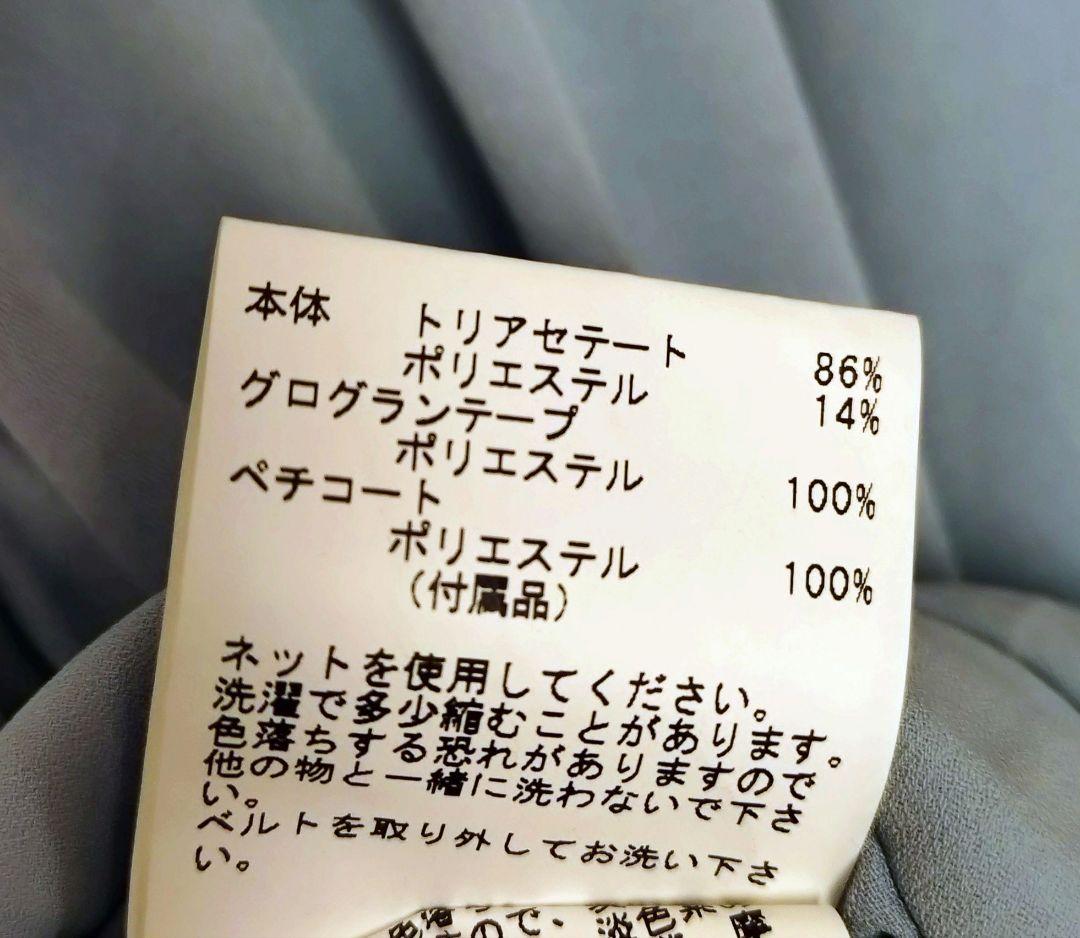 本体 トリアセテート 86%
ポリエステル 14%
グログランテープ
ポリエステル 100%
ペチコート
ポリエステル 100%
(付属品)
ネットを使用してください。
洗濯で多少縮むことがあります。
色落ちする恐れがありますので
他の物と一緒に洗わないで下さ
い。
ベルトを取り外してお洗い下さ
い。